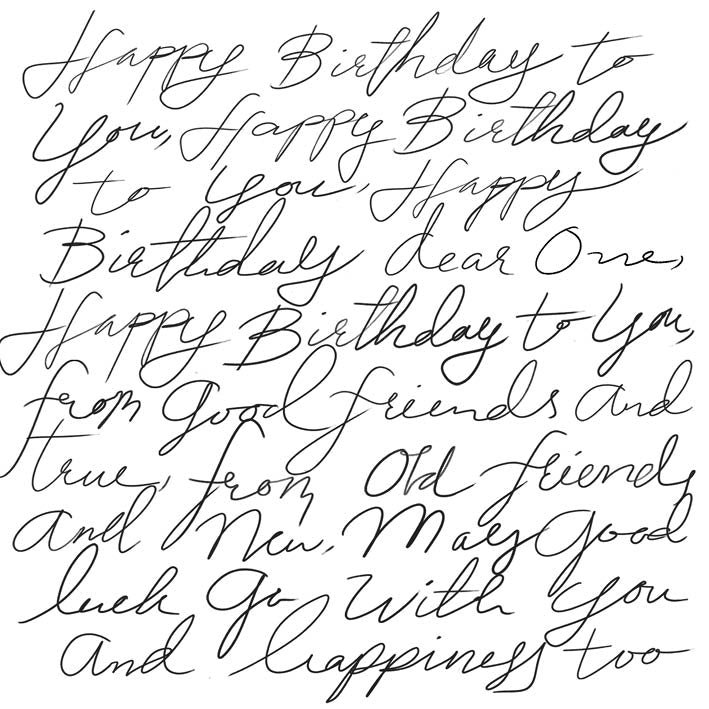 Happy Birthday to
You, Happy Birthday
to you, Happy
Birthday dear One,
Happy Birthday to You,
from good friends and
true, from Old friends
and New, May good
luck go With you
and happiness too